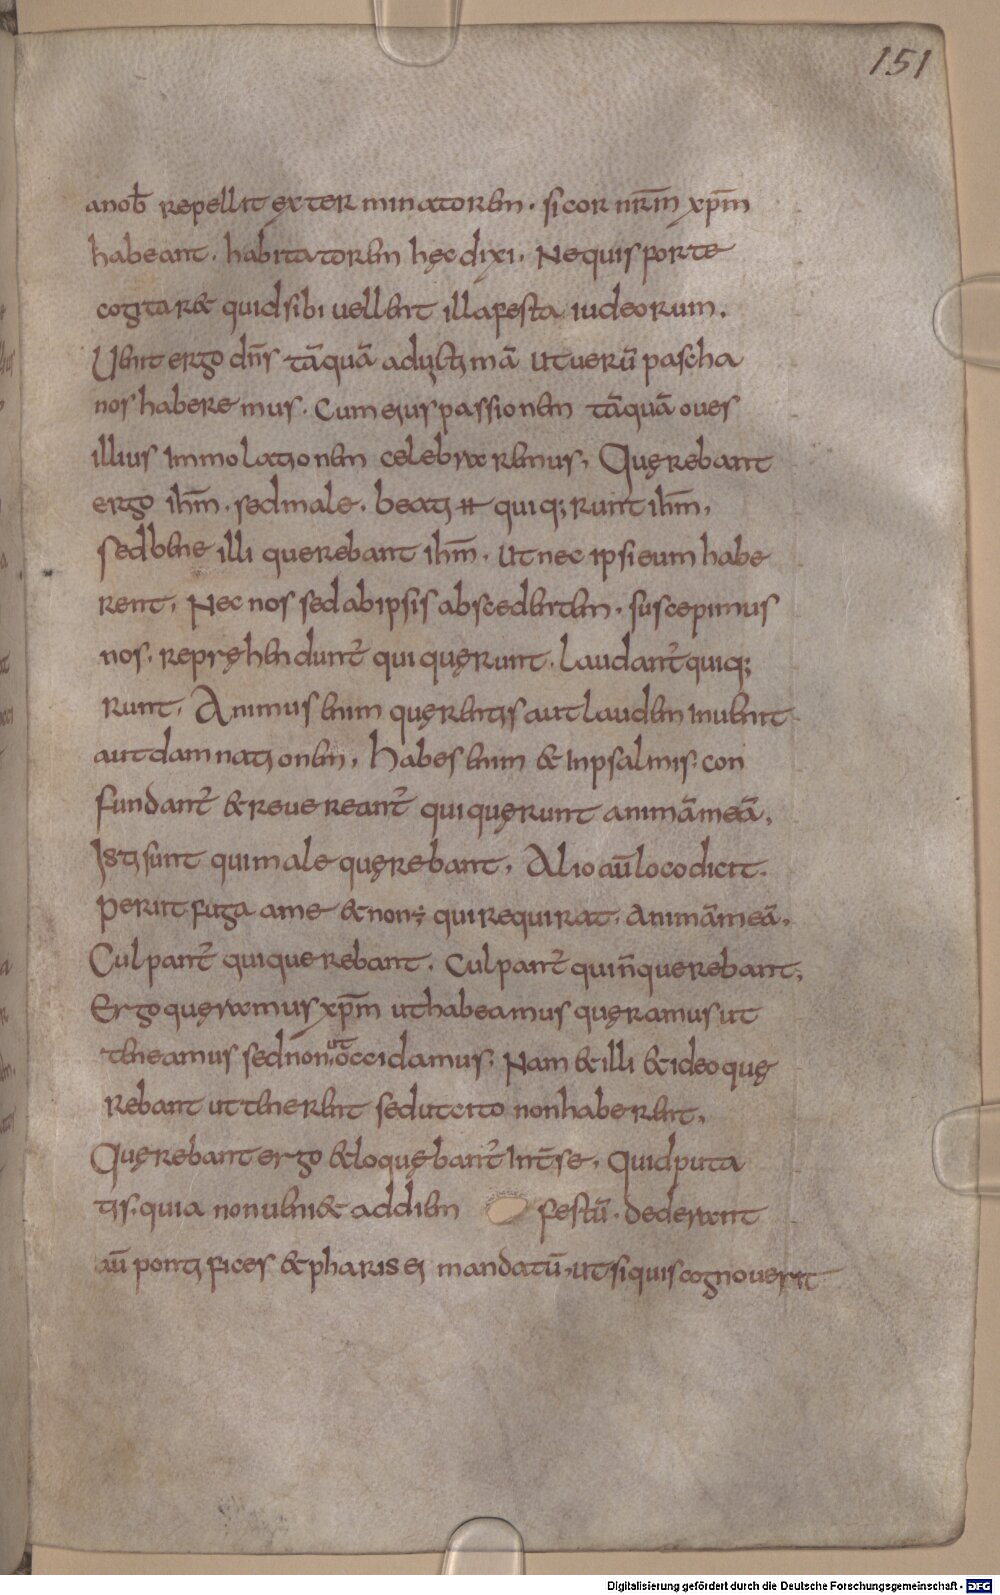 151
a nob̄ repellit exterminatorem. si cor nr̄m xp̄m
habeant. habitatorem hęc dixi. Ne quis forte
cogitaret quid sibi uellent illa festa iudeorum.
Uenit ergo dn̄s tāquā ad uictimā ut uerū pascha
nos haberemus. Cum eius passionem tāquā oues
illius Immolationem celebraremus. Quęrebant
ergo ih̄m. sed male. beati qui q;runt ih̄m.
sed bene illi querebant ih̄m. Ut nec ipsi eum habe
rent. Nec nos sed ab ipsis abscedentem. suscepimus
nos. repręhendunt̄ qui quęrunt. Laudant̄ qui q;
runt. Animus enim quęrentis aut laudem inuenit
aut damnationem. Habes enim & In psalmis. con
fundant̄ & reuereant̄ qui quęrunt animā meā.
Isti sunt qui male quęrebant. Alio aū loco dicit.
Periit fuga a me & non ÷ qui requirat. Animā meā.
Culpant̄ qui querebant. Culpant̄ qui n̄ querebant.
Ergo quęramus xp̄m ut habeamus quęramus ut
teneamus sed non ut occidamus. Nam & illi & ideo quę
rebant ut tenerent sed ut cito non haberent.
Quęrebant ergo & loquębant̄ Int̄ se. Quid puta
tis. quia non ueni& ad diem festū. dederunt
aū pontifices & pharisei mandatū. ut si quis cognouerit
Digitalisierung gefördert durch die Deutsche Forschungsgemeinschaft - DFG